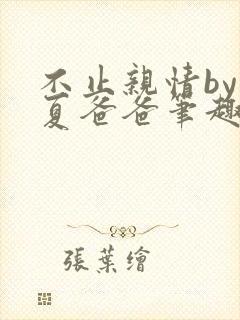 不止親情by
夏爸爸筆趣
張葉繪